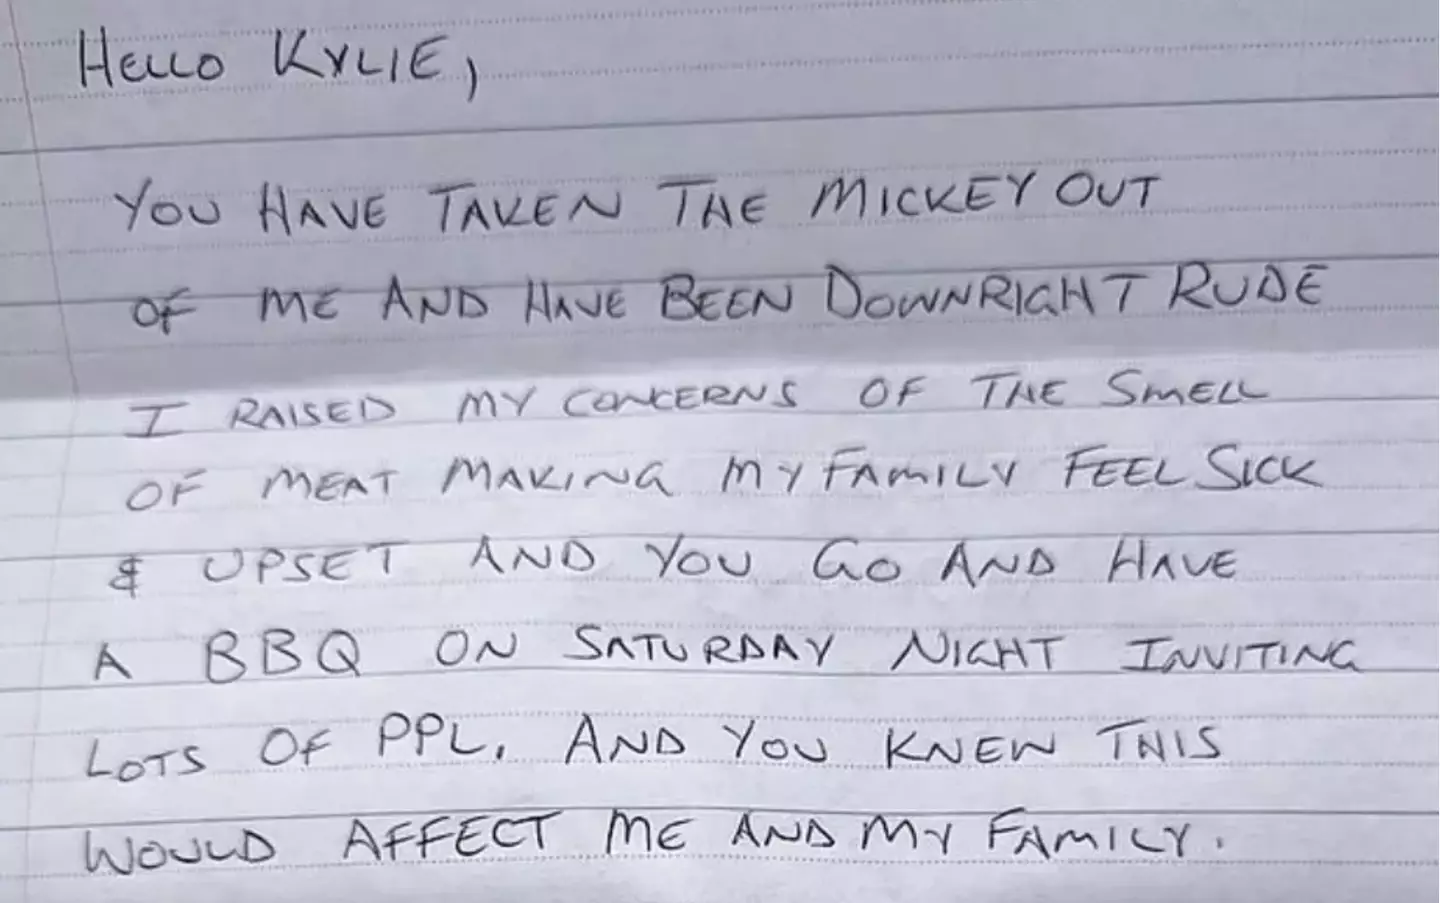 HELLO KYLIE,
YOU HAVE TAKEN THE MICKEY OUT
OF ME AND HAVE BEEN DOWNRIGHT RUDE
I RAISED MY CONCERNS OF THE SMELL
OF MEAT MAKING MY FAMILY FEEL SICK
& UPSET AND YOU GO AND HAVE
A BBQ ON SATURDAY NIGHT INVITING
LOTS OF PPL. AND YOU KNEW THIS
WOULD AFFECT ME AND MY FAMILY.